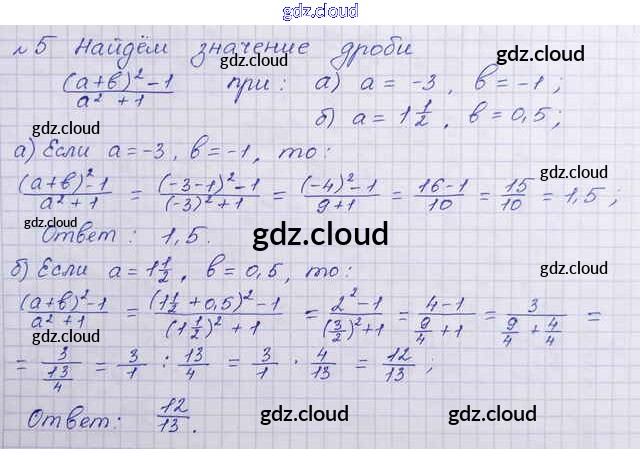 gdz.cloud
№5 Найдём значение дроби
gdz.cloud gdz.cloud
((a+b)²-1)/(a²+1) при: а) a = -3, b = -1;
gdz.cloud
б) a = 1 1/2, b = 0,5;
gdz.cloud
а) Если a = -3, b = -1, то:
gdz.cloud
((a+b)²-1)/(a²+1) = ((-3-1)²-1)/((-3)²+1) = ((-4)²-1)/(9+1) = (16-1)/10 = 15/10 = 1,5;
gdz.cloud
Ответ: 1,5.
gdz.cloud
б) Если a = 1 1/2, b = 0,5, то:
gdz.cloud
((a+b)²-1)/(a²+1) = ((1 1/2 + 0,5)²-1)/((1 1/2)²+1) = (2²-1)/((3/2)²+1) = (4-1)/(9/4+1) = 3/(9/4+4/4) =
gdz.cloud
= 3/(13/4) = 3/1 : 13/4 = 3/1 · 4/13 = 12/13;
Ответ: 12/13.
gdz.cloud gdz.cloud